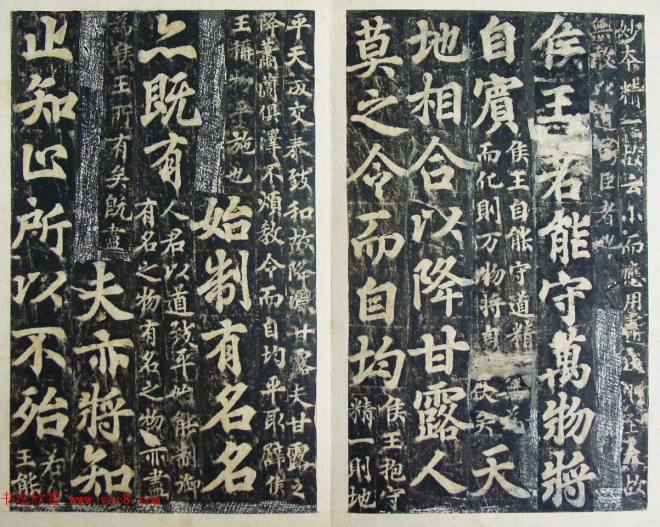 妙本精一故云小而應用
無敢以道為臣者也
侯王若能守萬物將
自賓侯王自能守道精
而化則万物將自天
地相合以降甘露人
莫之令而自均侯王抱守
精一則地
平天成交泰致和故降甘露夫甘露之
降蕭蘭俱澤不煩教令而自均平取譬侯
王稱物平施也始制有名名
亦既有人君以道致平始能制御
有名之物有名之物亦盡
為侯王所有矣既盡夫亦將知
止知止所以不殆若
王能
书法欣赏 www.yac8.com